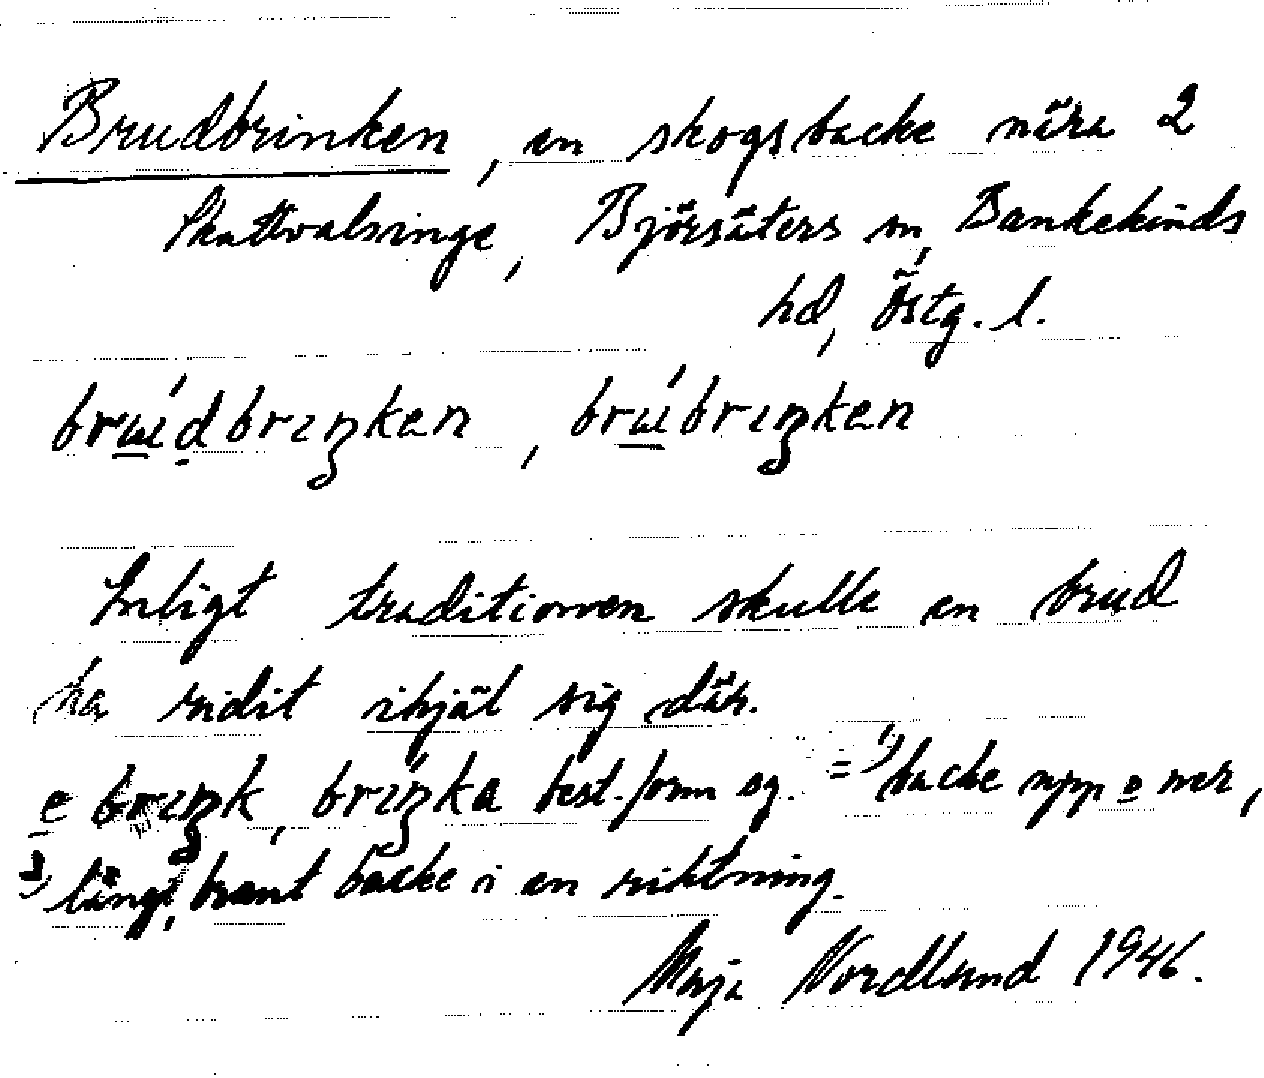 Brudbrinken, en skogsbacke nära 2
Skattvalsinge, Björsäters sn, Bankekinds
hd, Östg. l.
brɯ́dbrıŋken, brɯ́brıŋken
Enligt traditionen skulle en brud
ha ridit ihjäl sig där.
e brıŋk, bríŋka best. form sg. = 1) backe upp o ner,
2) långt, brant backe i en riktning.
Maja Nordlund 1946.